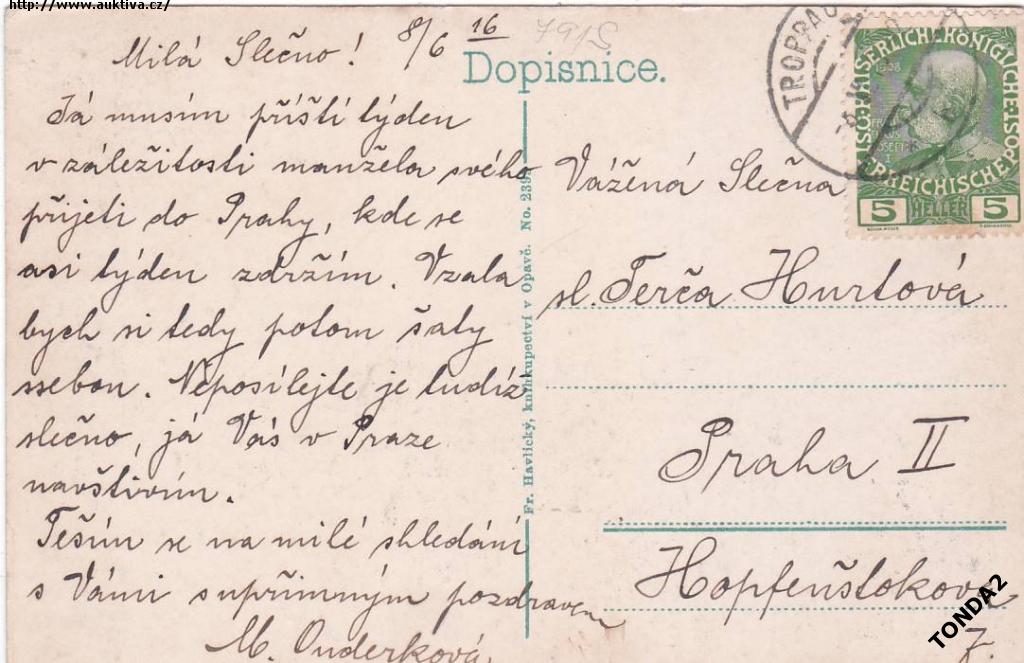 http://www.auktiva.cz/
8/6 16
791S
Milá Slečno!
Dopisnice.
Já musím příští týden
v záležitosti manžela svého
přijeti do Prahy, kde se
asi týden zdržím. Vzala
bych si tedy potom šaty
ssebou. Neposílejte je tudíž
slečno, já Vás v Praze
navštívím.
Těším se na milé shledání
s Vámi s upřímným pozdravem
M. Onderková
Fr. Havlický, knihkupectví v Opavě. No. 239
TROPPAU
KAISERLICHE KÖNIGLICHE ÖSTERREICHISCHE POST
1908
5 HELLER 5
Vážená Slečna
sl. Terča Hurtová
Praha II
Hopfenštokova
7.
TONDA2